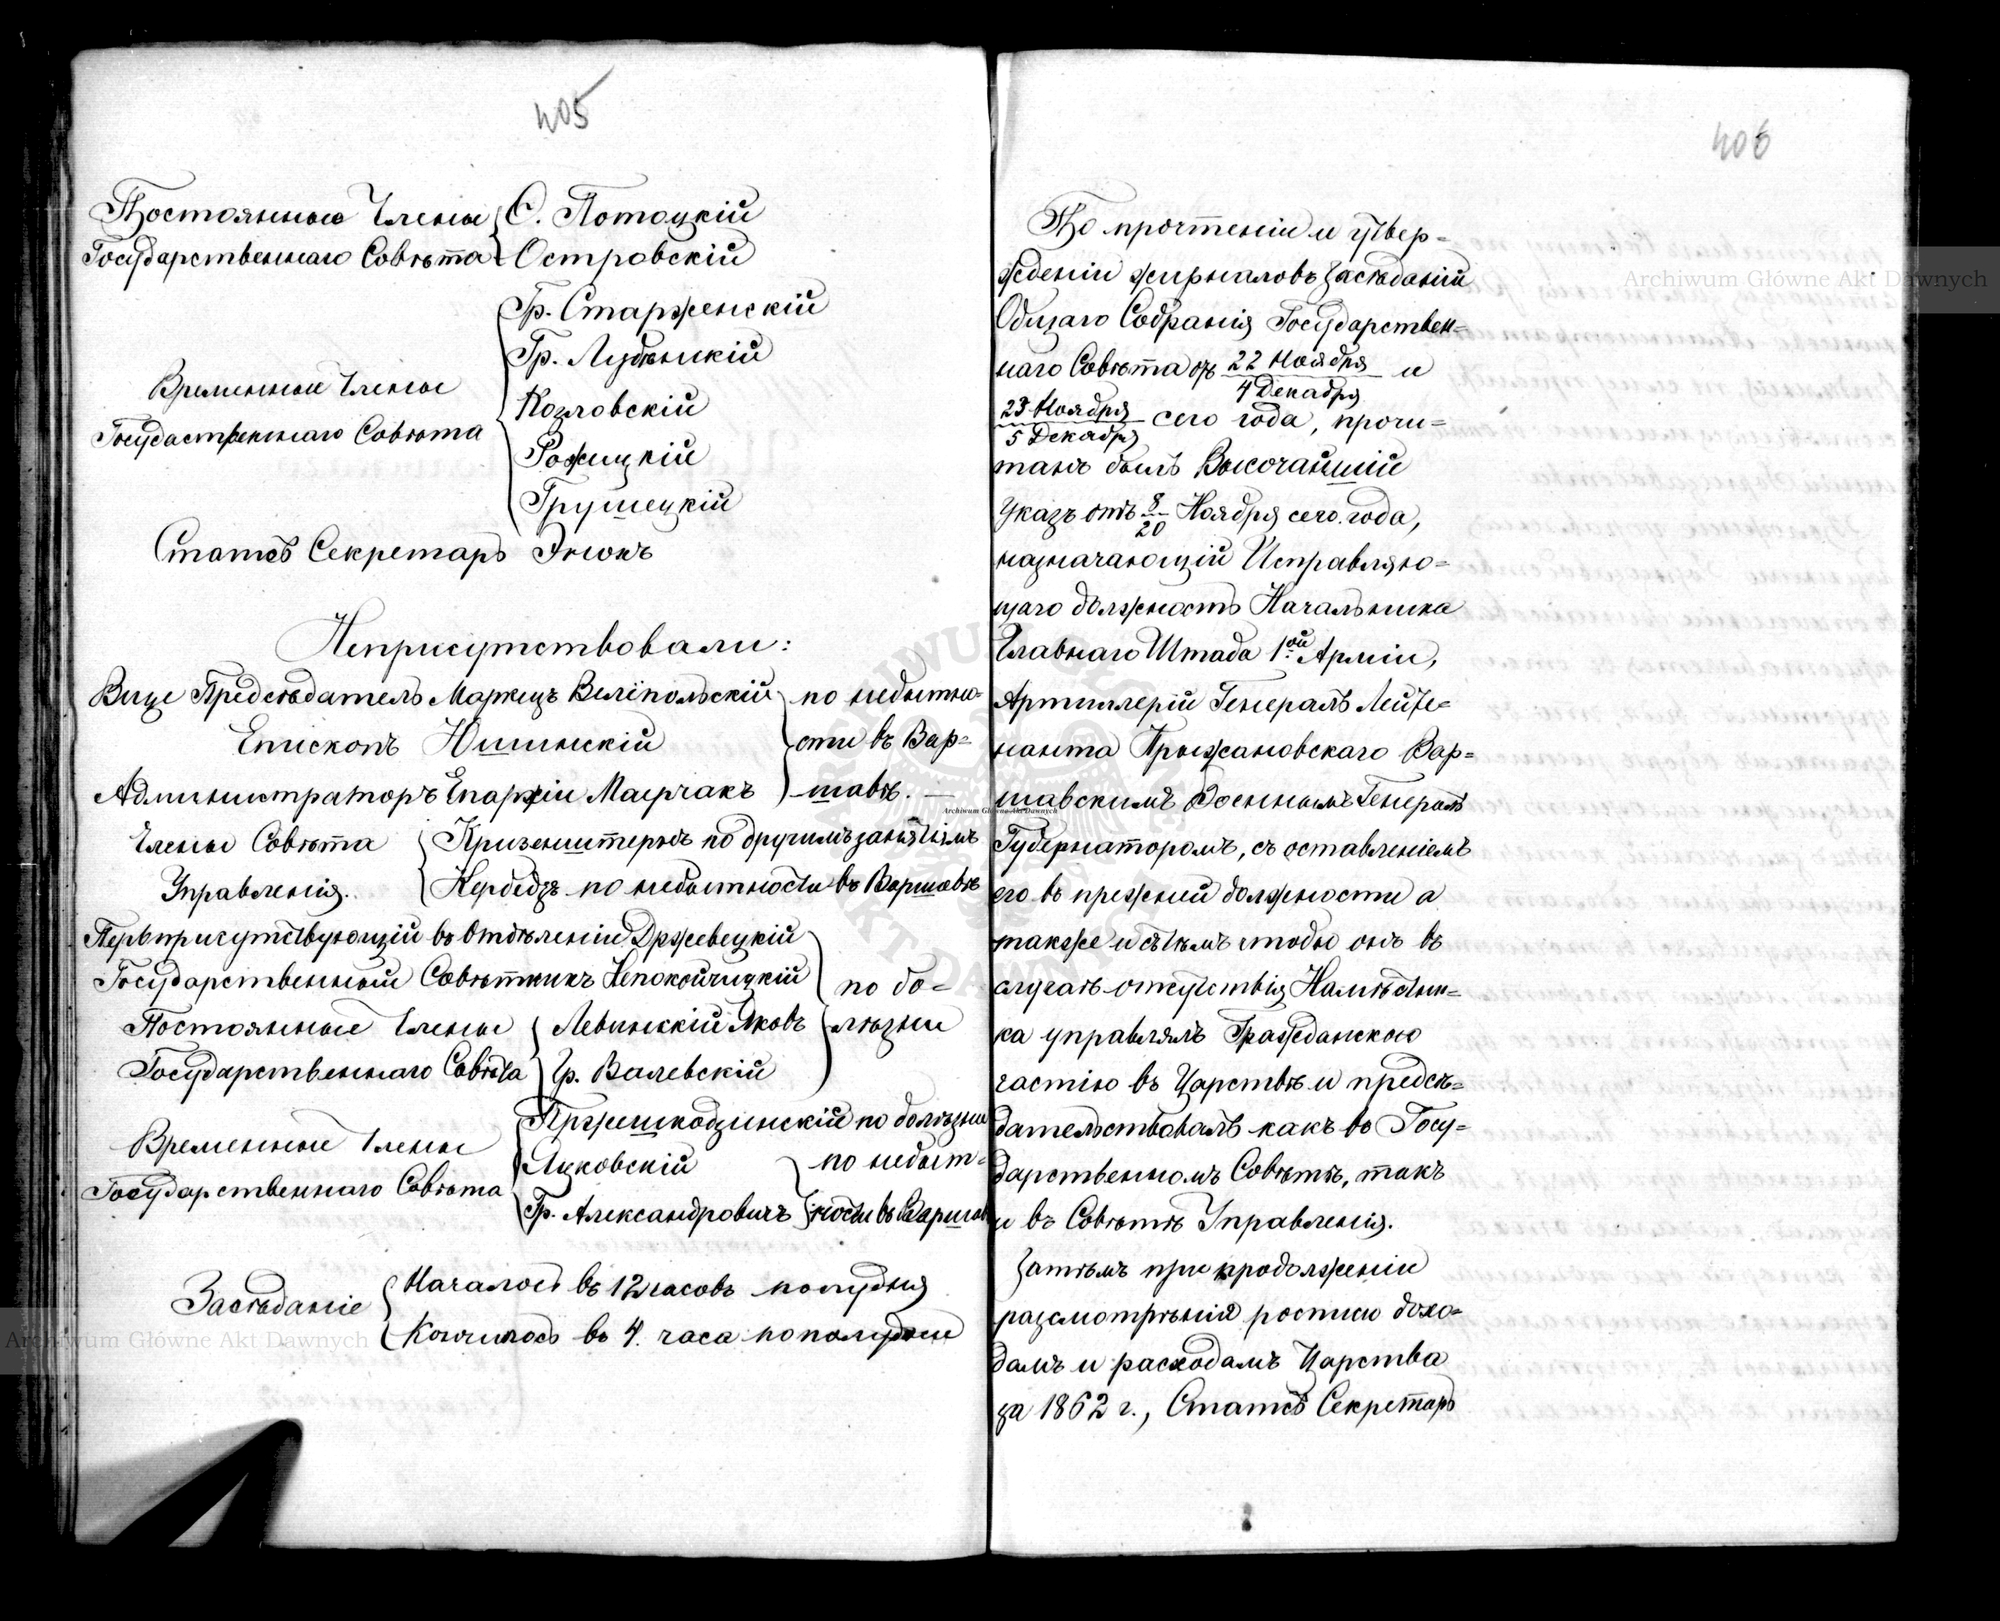 405
Постоянные Члены { С. Потоцкій
Государственнаго Совѣта { Островскій
Гр. Старженскій
Гр. Лубѣнскій
Временные Члены
Козловскій
Государственнаго Совѣта
Рожицкій
Грушецкій
Статсъ Секретарь Энохъ
Неприсутствовали:
Вице Предсѣдатель Маркизъ Велiопольскій } по небытно-
Епископъ Юшинскій } сти въ Вар-
Администраторъ Епархіи Маерчакъ } шавѣ. —
Члены Совѣта { Крузенштернъ по другимъ занятіямъ
Управленія. { Кербедзъ по небытности въ Варшавѣ
Первприсутствующій въ Отдѣленіи Држевецкій
Государственный Совѣтникъ Непокойчицкій } по бо-
Постоянные Члены { Левинскій Яковъ } лѣзни
Государственнаго Совѣта { Гр. Валевскій
Пржешкодзинскій по болѣзни
Временные Члены
Яцковскій } по небыт-
Государственнаго Совѣта
Гр. Александровичъ } ности въ Варшав
Засѣданіе { Началось въ 12 часовъ полудня
{ Кончилось въ 4. часа по полудни
406
По прочтеніи и утвер-
жденіи журналовъ Засѣданій
Общаго Собранія Государствен-
наго Совѣта отъ 22 Ноября / 4 Декабря и
23 Ноября / 5 Декабря сего года, прочи-
танъ былъ Высочайшій
Указъ отъ 8/20 Ноября сего года,
назначающій Исправляю-
щаго должность Начальника
Главнаго Штаба 1ой Арміи,
Артиллеріи Генералъ Лейте-
нанта Крыжановскаго Вар-
шавскимъ Военнымъ Генералъ
Губернаторомъ, съ оставленіемъ
его въ прежней должности а
также и съ тѣмъ чтобы онъ въ
случаѣ отсутствія Намѣстни-
ка управлялъ Гражданскою
частію въ Царствѣ и предсѣ-
дательствовалъ какъ въ Госу-
дарственномъ Совѣтѣ, такъ
и въ Совѣтѣ Управленія.
Затѣмъ при продолженіи
разсмотрѣнія росписи дохо-
дамъ и расходамъ Царства
за 1862 г., Статсъ Секретарь
Archiwum Główne Akt Dawnych
Archiwum Główne Akt Dawnych
Archiwum Główne Akt Dawnych